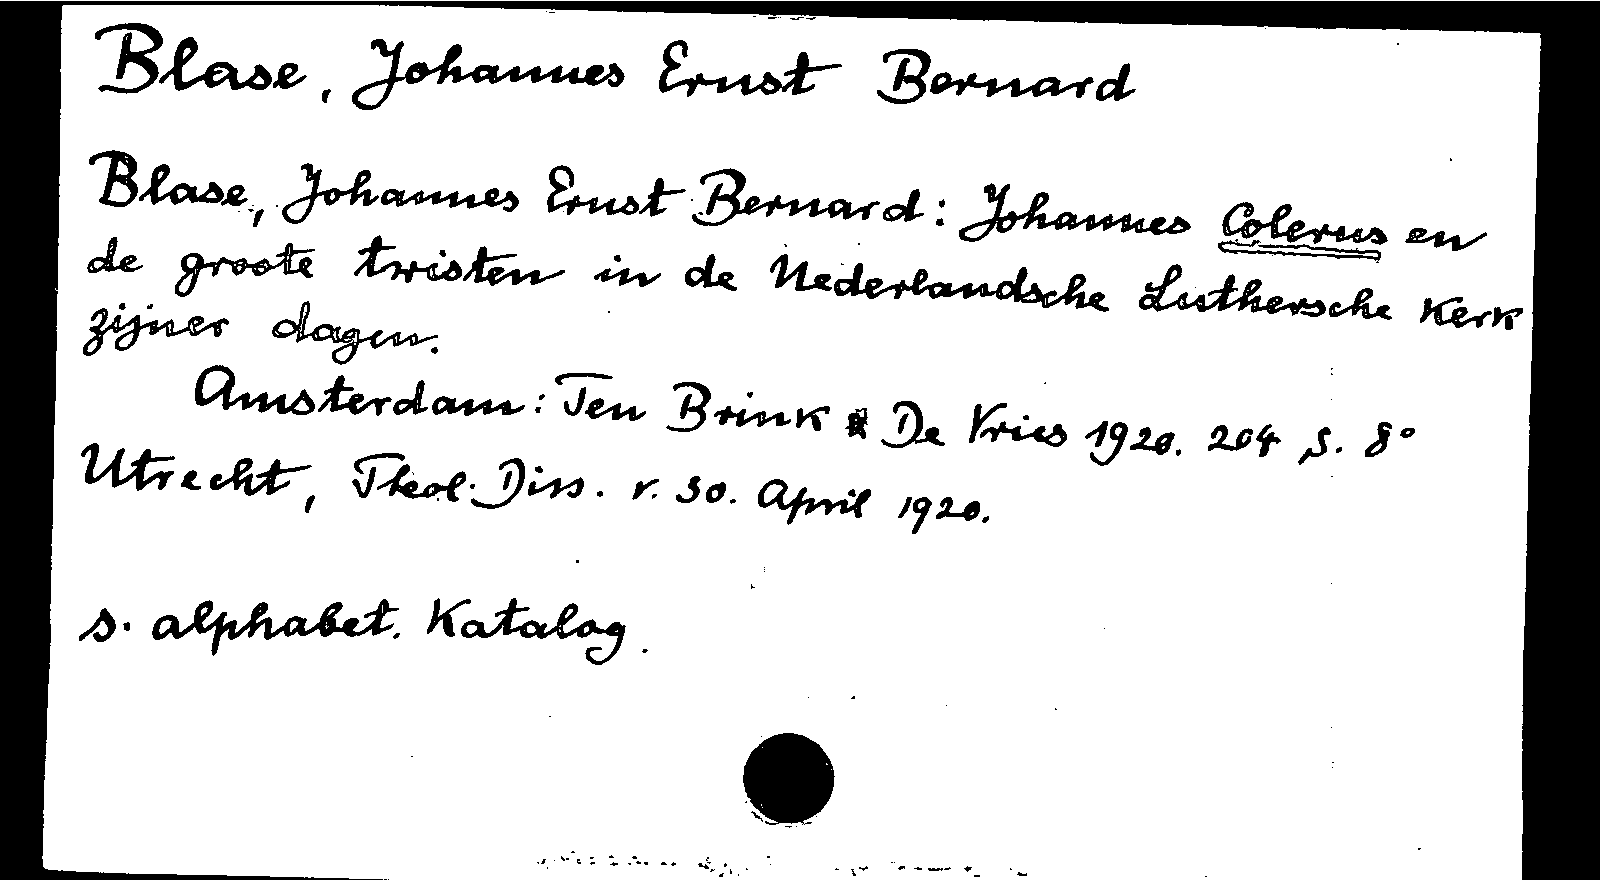 Blase, Johannes Ernst Bernard
Blase, Johannes Ernst Bernard: Johannes Colerus en
de groote twisten in de Nederlandsche Luthersche Kerk
zijner dagen.
Amsterdam: Ten Brink & De Vries 1920. 204 S. 8°
Utrecht, Theol. Diss. v. 30. April 1920.
s. alphabet. Katalog.